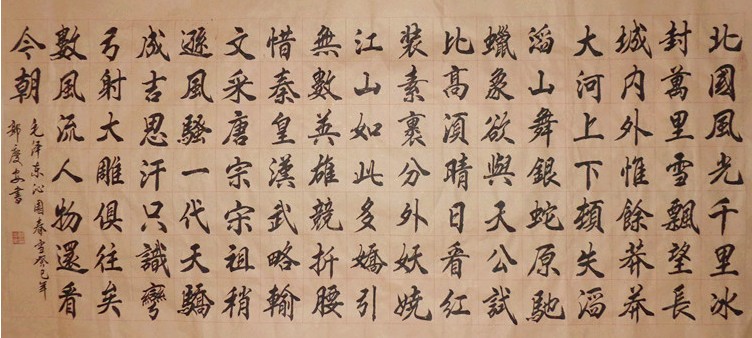 北國風光千里冰
封萬里雪飄望長
城内外惟餘莽莽
大河上下頓失滔
滔山舞銀蛇原馳
蠟象欲與天公試
比高須晴日看紅
裝素裹分外妖嬈
江山如此多嬌引
無數英雄競折腰
惜秦皇漢武略輸
文采唐宗宋祖稍
遜風騷一代天驕
成吉思汗只識彎
弓射大雕俱往矣
數風流人物還看
今朝
毛泽东沁园春雪癸巳年
書